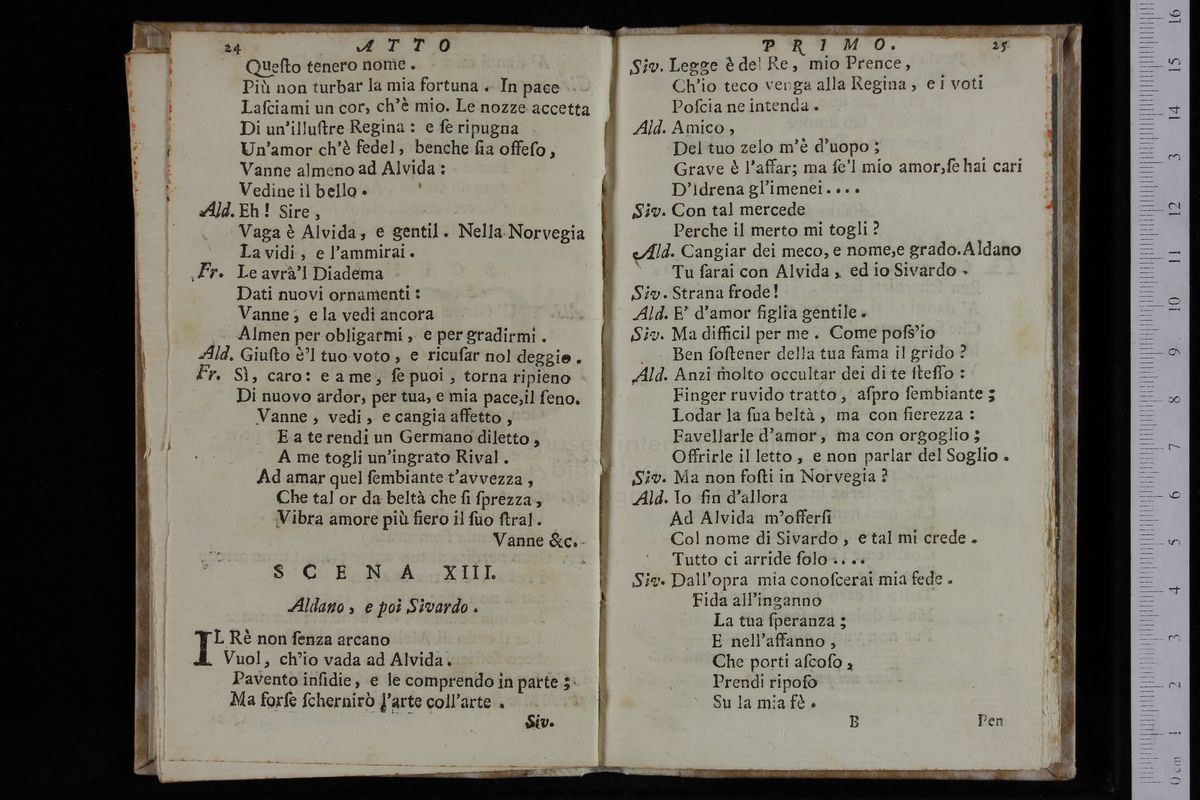 24 ATTO
Queſto tenero nome.
Più non turbar la mia fortuna. In pace
Laſciami un cor, ch'è mio. Le nozze accetta
Di un'illuſtre Regina: e ſe ripugna
Un'amor ch'è fedel, benche ſia offeſo,
Vanne almeno ad Alvida:
Vedine il bello.
Ald. Eh! Sire,
Vaga è Alvida, e gentil. Nella Norvegia
La vidi, e l'ammirai.
Fr. Le avrà'l Diadema
Dati nuovi ornamenti:
Vanne, e la vedi ancora
Almen per obligarmi, e per gradirmi.
Ald. Giuſto è'l tuo voto, e ricuſar nol deggio.
Fr. Sì, caro: e a me, ſe puoi, torna ripieno
Di nuovo ardor, per tua, e mia pace, il ſeno.
Vanne, vedi, e cangia affetto,
E a te rendi un Germano diletto,
A me togli un'ingrato Rival.
Ad amar quel ſembiante t'avvezza,
Che tal or da beltà che ſi ſprezza,
Vibra amore più fiero il ſuo ſtral.
Vanne &c.
SCENA XIII.
Aldano, e poi Sivardo.
IL Rè non ſenza arcano
Vuol, ch'io vada ad Alvida.
Pavento inſidie, e le comprendo in parte;
Ma forſe ſchernirò l'arte coll'arte.
Siv.
PRIMO. 25
Siv. Legge è del Re, mio Prence,
Ch'io teco venga alla Regina, e i voti
Poſcia ne intenda.
Ald. Amico,
Del tuo zelo m'è d'uopo;
Grave è l'affar; ma ſe'l mio amor, ſe hai cari
D'Idrena gl'imenei....
Siv. Con tal mercede
Perche il merto mi togli?
Ald. Cangiar dei meco, e nome, e grado. Aldano
Tu ſarai con Alvida, ed io Sivardo.
Siv. Strana frode!
Ald. E' d'amor figlia gentile.
Siv. Ma difficil per me. Come poſs'io
Ben ſoſtener della tua fama il grido?
Ald. Anzi molto occultar dei di te ſteſſo:
Finger ruvido tratto, aſpro ſembiante;
Lodar la ſua beltà, ma con fierezza:
Favellarle d'amor, ma con orgoglio;
Offrirle il letto, e non parlar del Soglio.
Siv. Ma non foſti in Norvegia?
Ald. Io ſin d'allora
Ad Alvida m'offerſi
Col nome di Sivardo, e tal mi crede.
Tutto ci arride ſolo....
Siv. Dall'opra mia conoſcerai mia fede.
Fida all'inganno
La tua ſperanza;
E nell'affanno,
Che porti aſcoſo,
Prendi ripoſo
Su la mia fè.
B Pen
0 cm 1 2 3 4 5 6 7 8 9 10 11 12 13 14 15 16